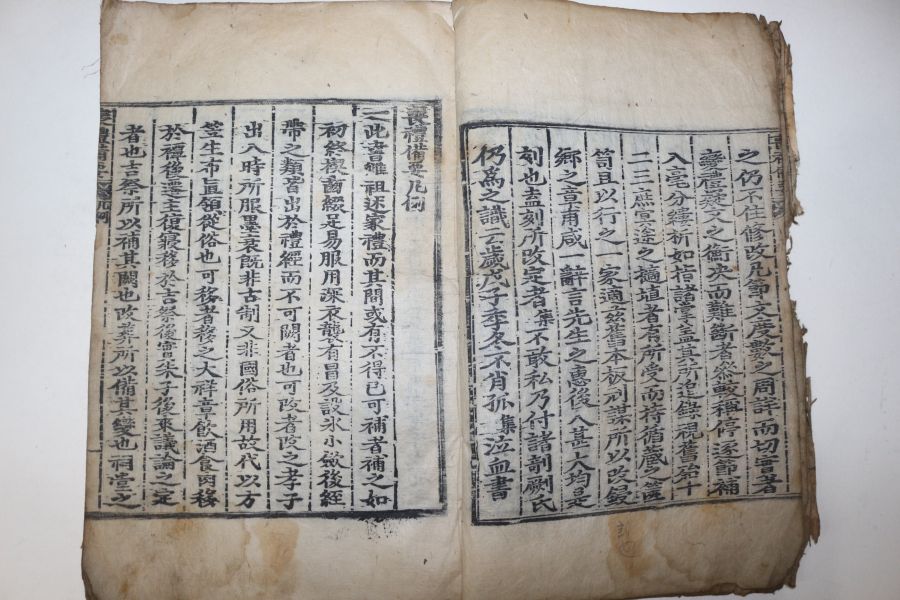 之仍不住修改凡節文度數之周詳而切實者
變禮疑文之衝決而難斷者參畋稱停逐節補
入毫分縷析如指諸掌蓋其所追錄視舊殆十
二三庶冥途之擿埴者有所受而持循蔵之篋
笥且以行之一家適茲舊本板刓謀所以改鋟
鄕之章甫咸一辭言先生之惠後人甚大均是
刻也盍刻所改定者集不敢私乃付諸剞劂氏
仍爲之識云歲戊子季冬不肖孤集泣血書
喪禮備要凡例
一此書雖祖述家禮而其間或有不得已可補者補之如
初終楔齒綴足易服用深衣襲有冒及設氷小斂後絰
帶之類皆出於禮經而不可闕者也可改者改之孝子
出入時所服墨衰旣非古制又非國俗所用故代以方
笠生布直領從俗也可移者移之大祥章飮酒食肉移
於禫後遷主復寢移於吉祭後實朱子後來議論之定
者也吉祭所以補其闕也改葬所以備其變也祠堂之
喪禮備要 凡例